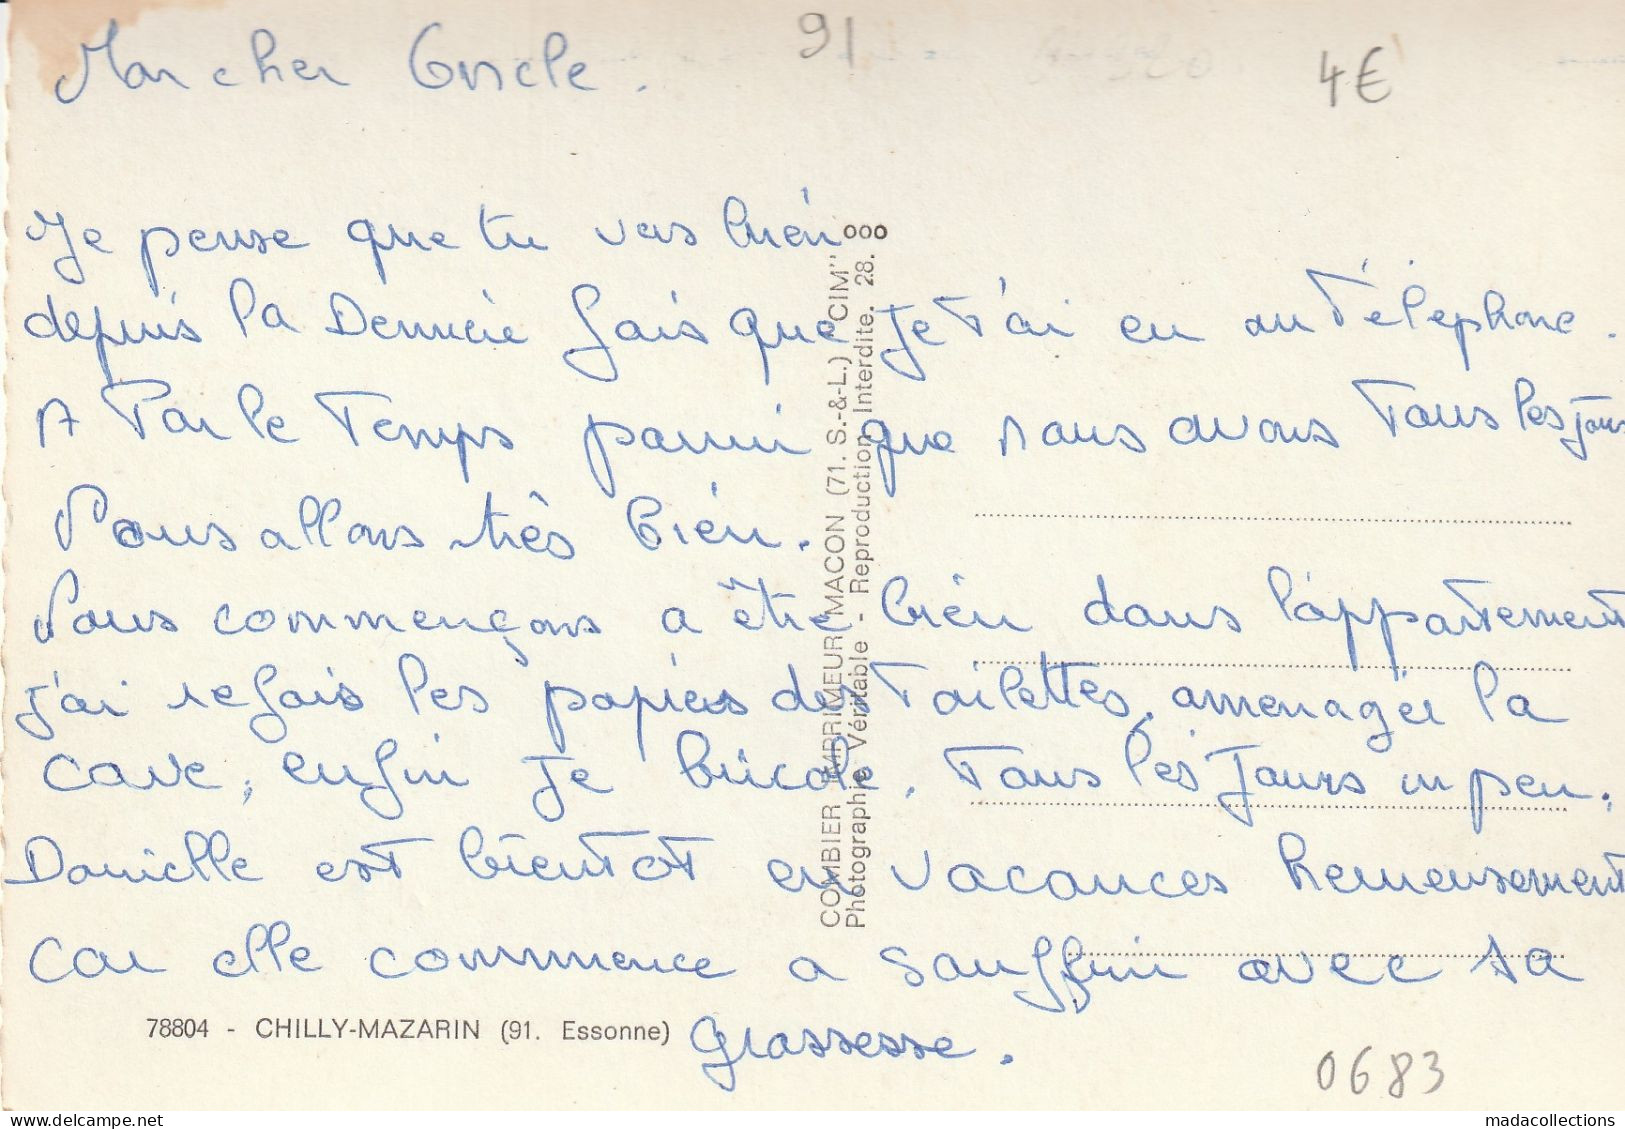 Mon cher Oncle.
91
4€
Je pense que tu vas bien
depuis la Dernière fois que je t'ai eu au Téléphone.
A Par le Temps pourri que nous avons Tous les jours
Nous allons très bien.
Nous commençons a être bien dans l'appartement
j'ai refais les papiers des Toilettes, aménager la
cave, enfin je bricole, Tous les Jours un peu.
Danielle est bientot en vacances heureusement
car elle commence a souffrir avec sa
grossesse.
78804 - CHILLY-MAZARIN (91. Essonne)
COMBIER IMPRIMEUR MACON (71. S.-&-L.) "CIM"
Photographie Véritable - Reproduction Interdite. 28.
0683
madacollections